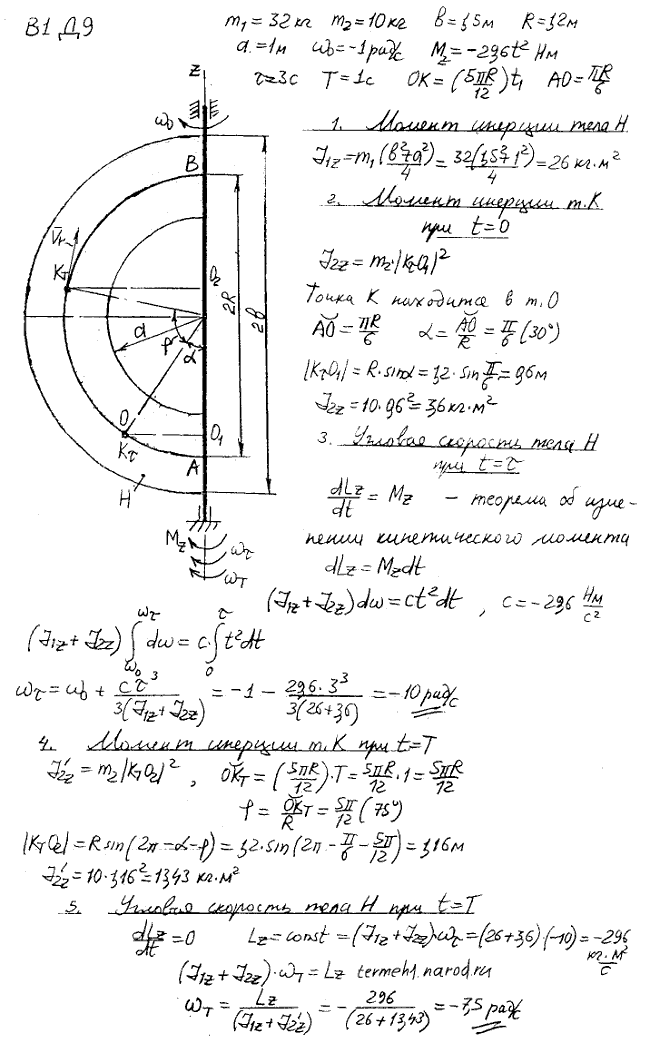 В1 Д9
m₁ = 32 кг  m₂ = 10 кг  в = 1,5 м  R = 1,2 м
a = 1 м  ω₀ = -1 рад/с  M_z = -29,6t² Нм
τ = 3с  T = 1с  OK = (5πR/12)t₁  AO = πR/6
z
ω₀
B
V̄r
K_T
O₂
2R
2в
a
φ
α
O
O₁
Kτ
A
H
M_z
ωτ
ω_T
1. Момент инерции тела Н
J₁z = m₁(в²+a²)/4 = 32(1,5²+1²)/4 = 26 кг·м²
2. Момент инерции т.К
при t=0
J₂z = m₂·|KτO₁|²
Точка К находится в т. О
AO = πR/6  α = AO/R = π/6 (30°)
|KτO₁| = R·sinα = 1,2·sin π/6 = 0,6 м
J₂z = 10·0,6² = 3,6 кг·м²
3. Угловая скорость тела Н
при t=τ
dLz/dt = Mz – теорема об изме-
нении кинетического момента
dLz = Mzdt
(J₁z + J₂z)dω = ct²dt , c = -29,6 Нм/с²
(J₁z + J₂z) ∫_{ω₀}^{ωτ} dω = c·∫_0^τ t²dt
ωτ = ω₀ + cτ³/3(J₁z+J₂z) = -1 - 29,6·3³/3(26+3,6) = -10 рад/с
4. Момент инерции т.К при t=T
J₂z' = m₂|K_TO₂|² , OK_T = (5πR/12)·T = 5πR/12·1 = 5πR/12
φ = OK_T/R = 5π/12 (75°)
|K_TO₂| = R sin(2π-α-φ) = 1,2·sin(2π - π/6 - 5π/12) = 1,16 м
J₂z' = 10·1,16² = 13,43 кг·м²
5. Угловая скорость тела Н при t=T
dLz/dt = 0  Lz = const = (J₁z+J₂z)·ωτ = (26+3,6)·(-10) = -296 кг·м²/с
(J₁z+J₂z)·ω_T = Lz termeh1.narod.ru
ω_T = Lz/(J₁z+J₂z') = - 296/(26+13,43) = -7,5 рад/с